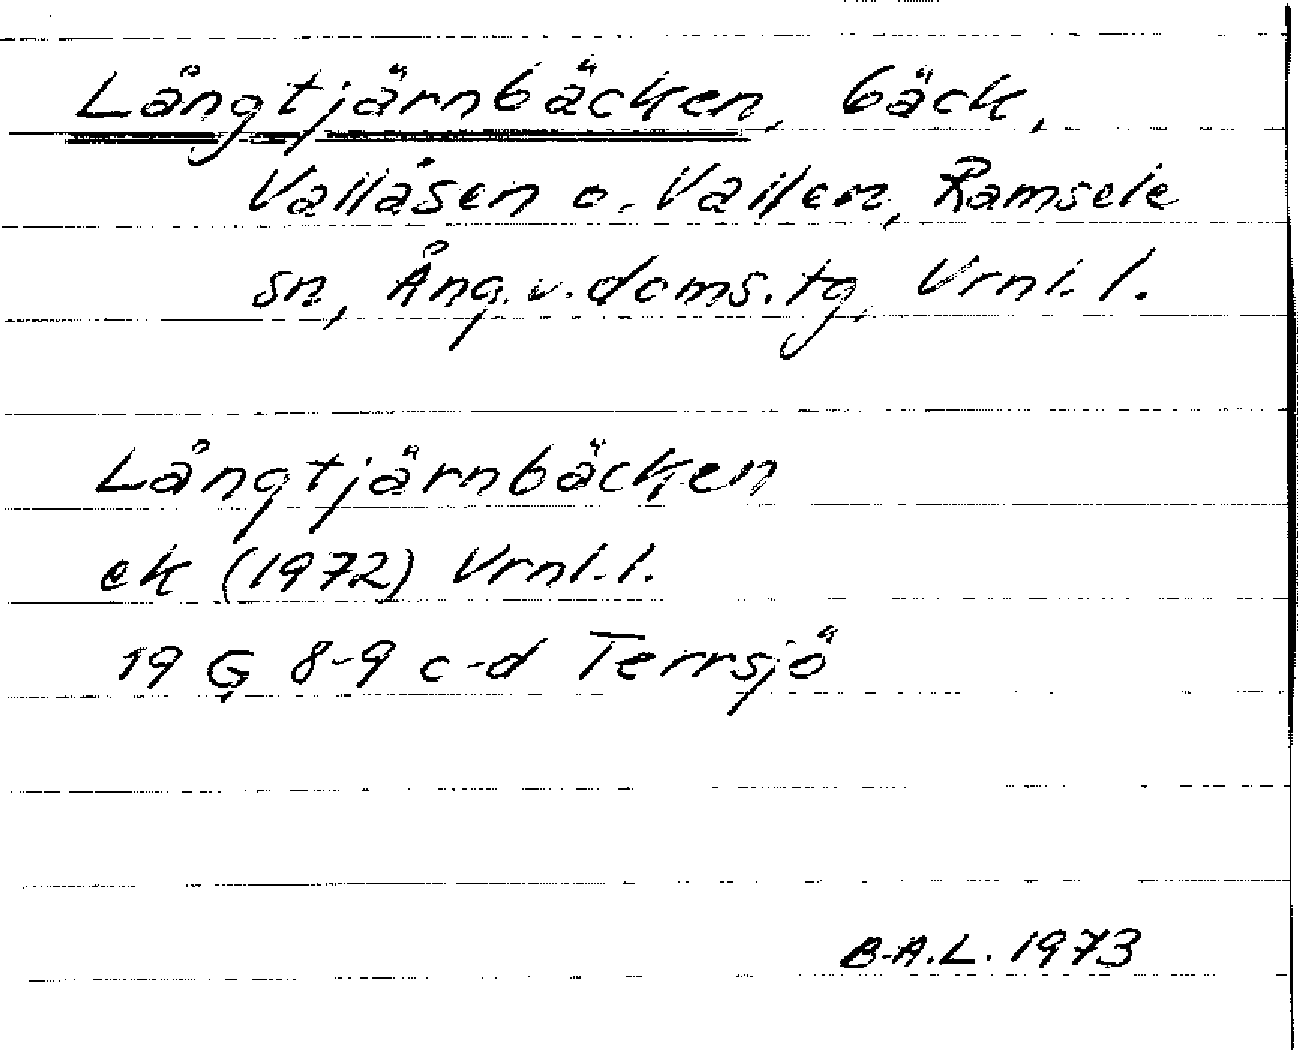 Långtjärnbäcken, bäck,
Vallåsen o. Vallen, Ramsele
sn, Ång. v. doms. tg, Vrnl. l.
Långtjärnbäcken
ek (1972) Vrnl. l.
19 G 8-9 c-d Terrsjö
B.A.L. 1973